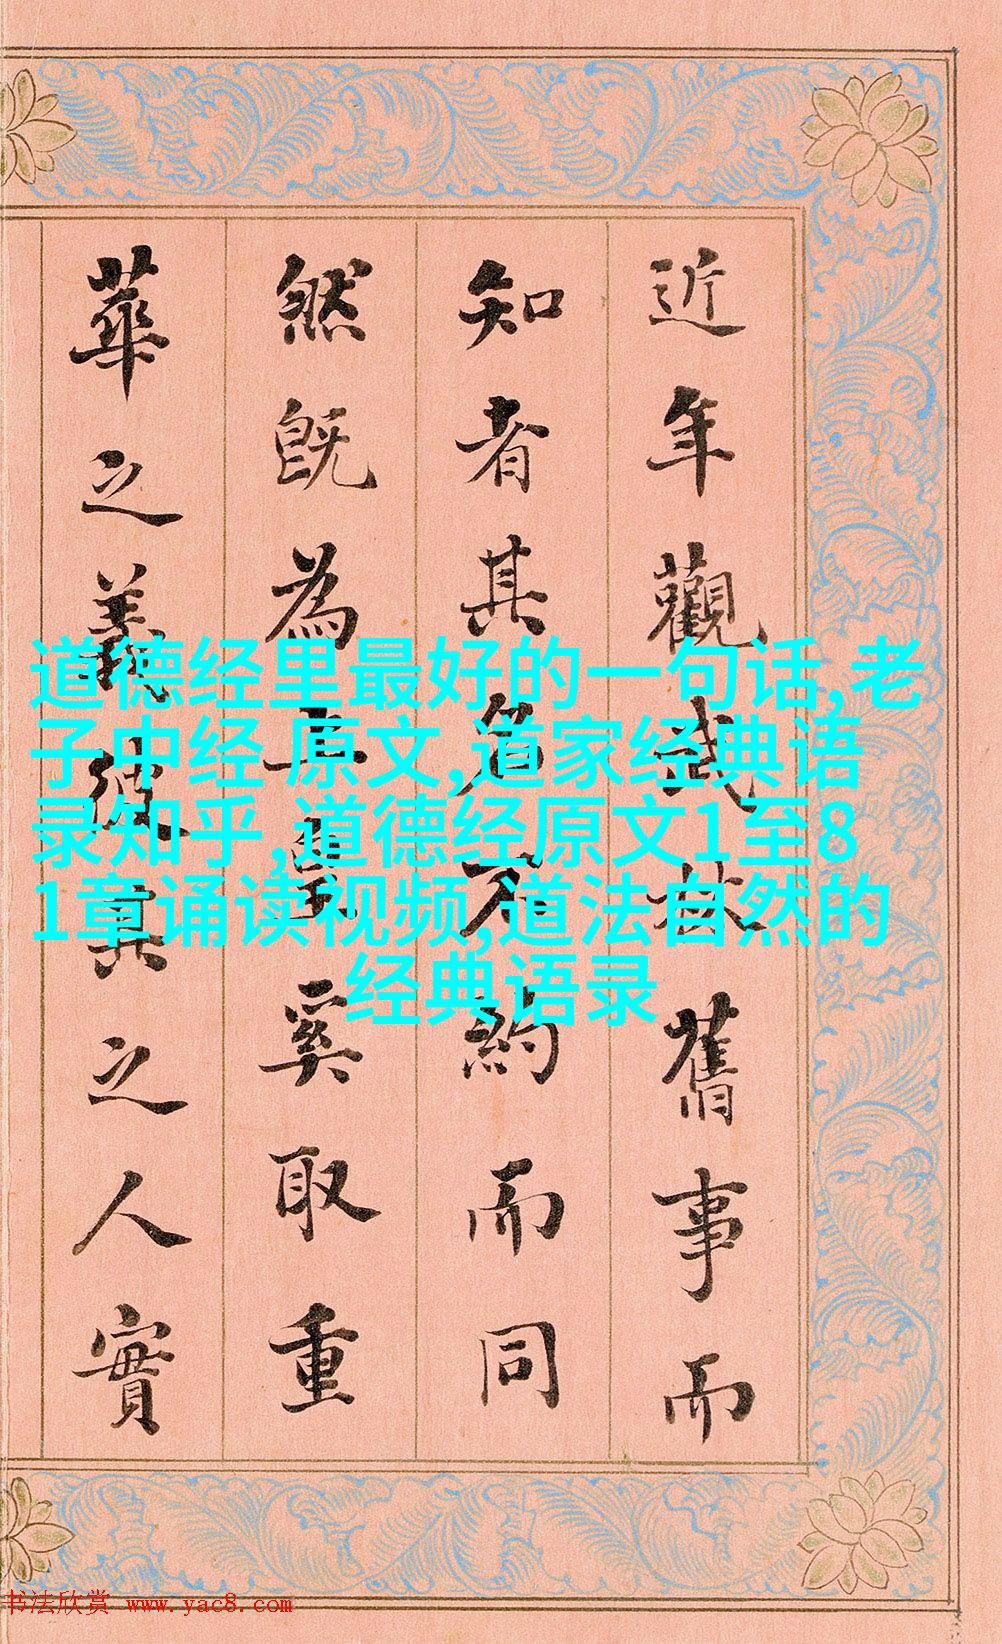 近年觀武林舊事而
知者其名不約而同
然既為奚取重
華之義彼之人實
道德经里最好的一句话,老
子中经 原文,道家经典语
录知乎,道德经原文1至8
1章诵读视频,道法自然的
经典语录
书法欣赏 www.yac8.com